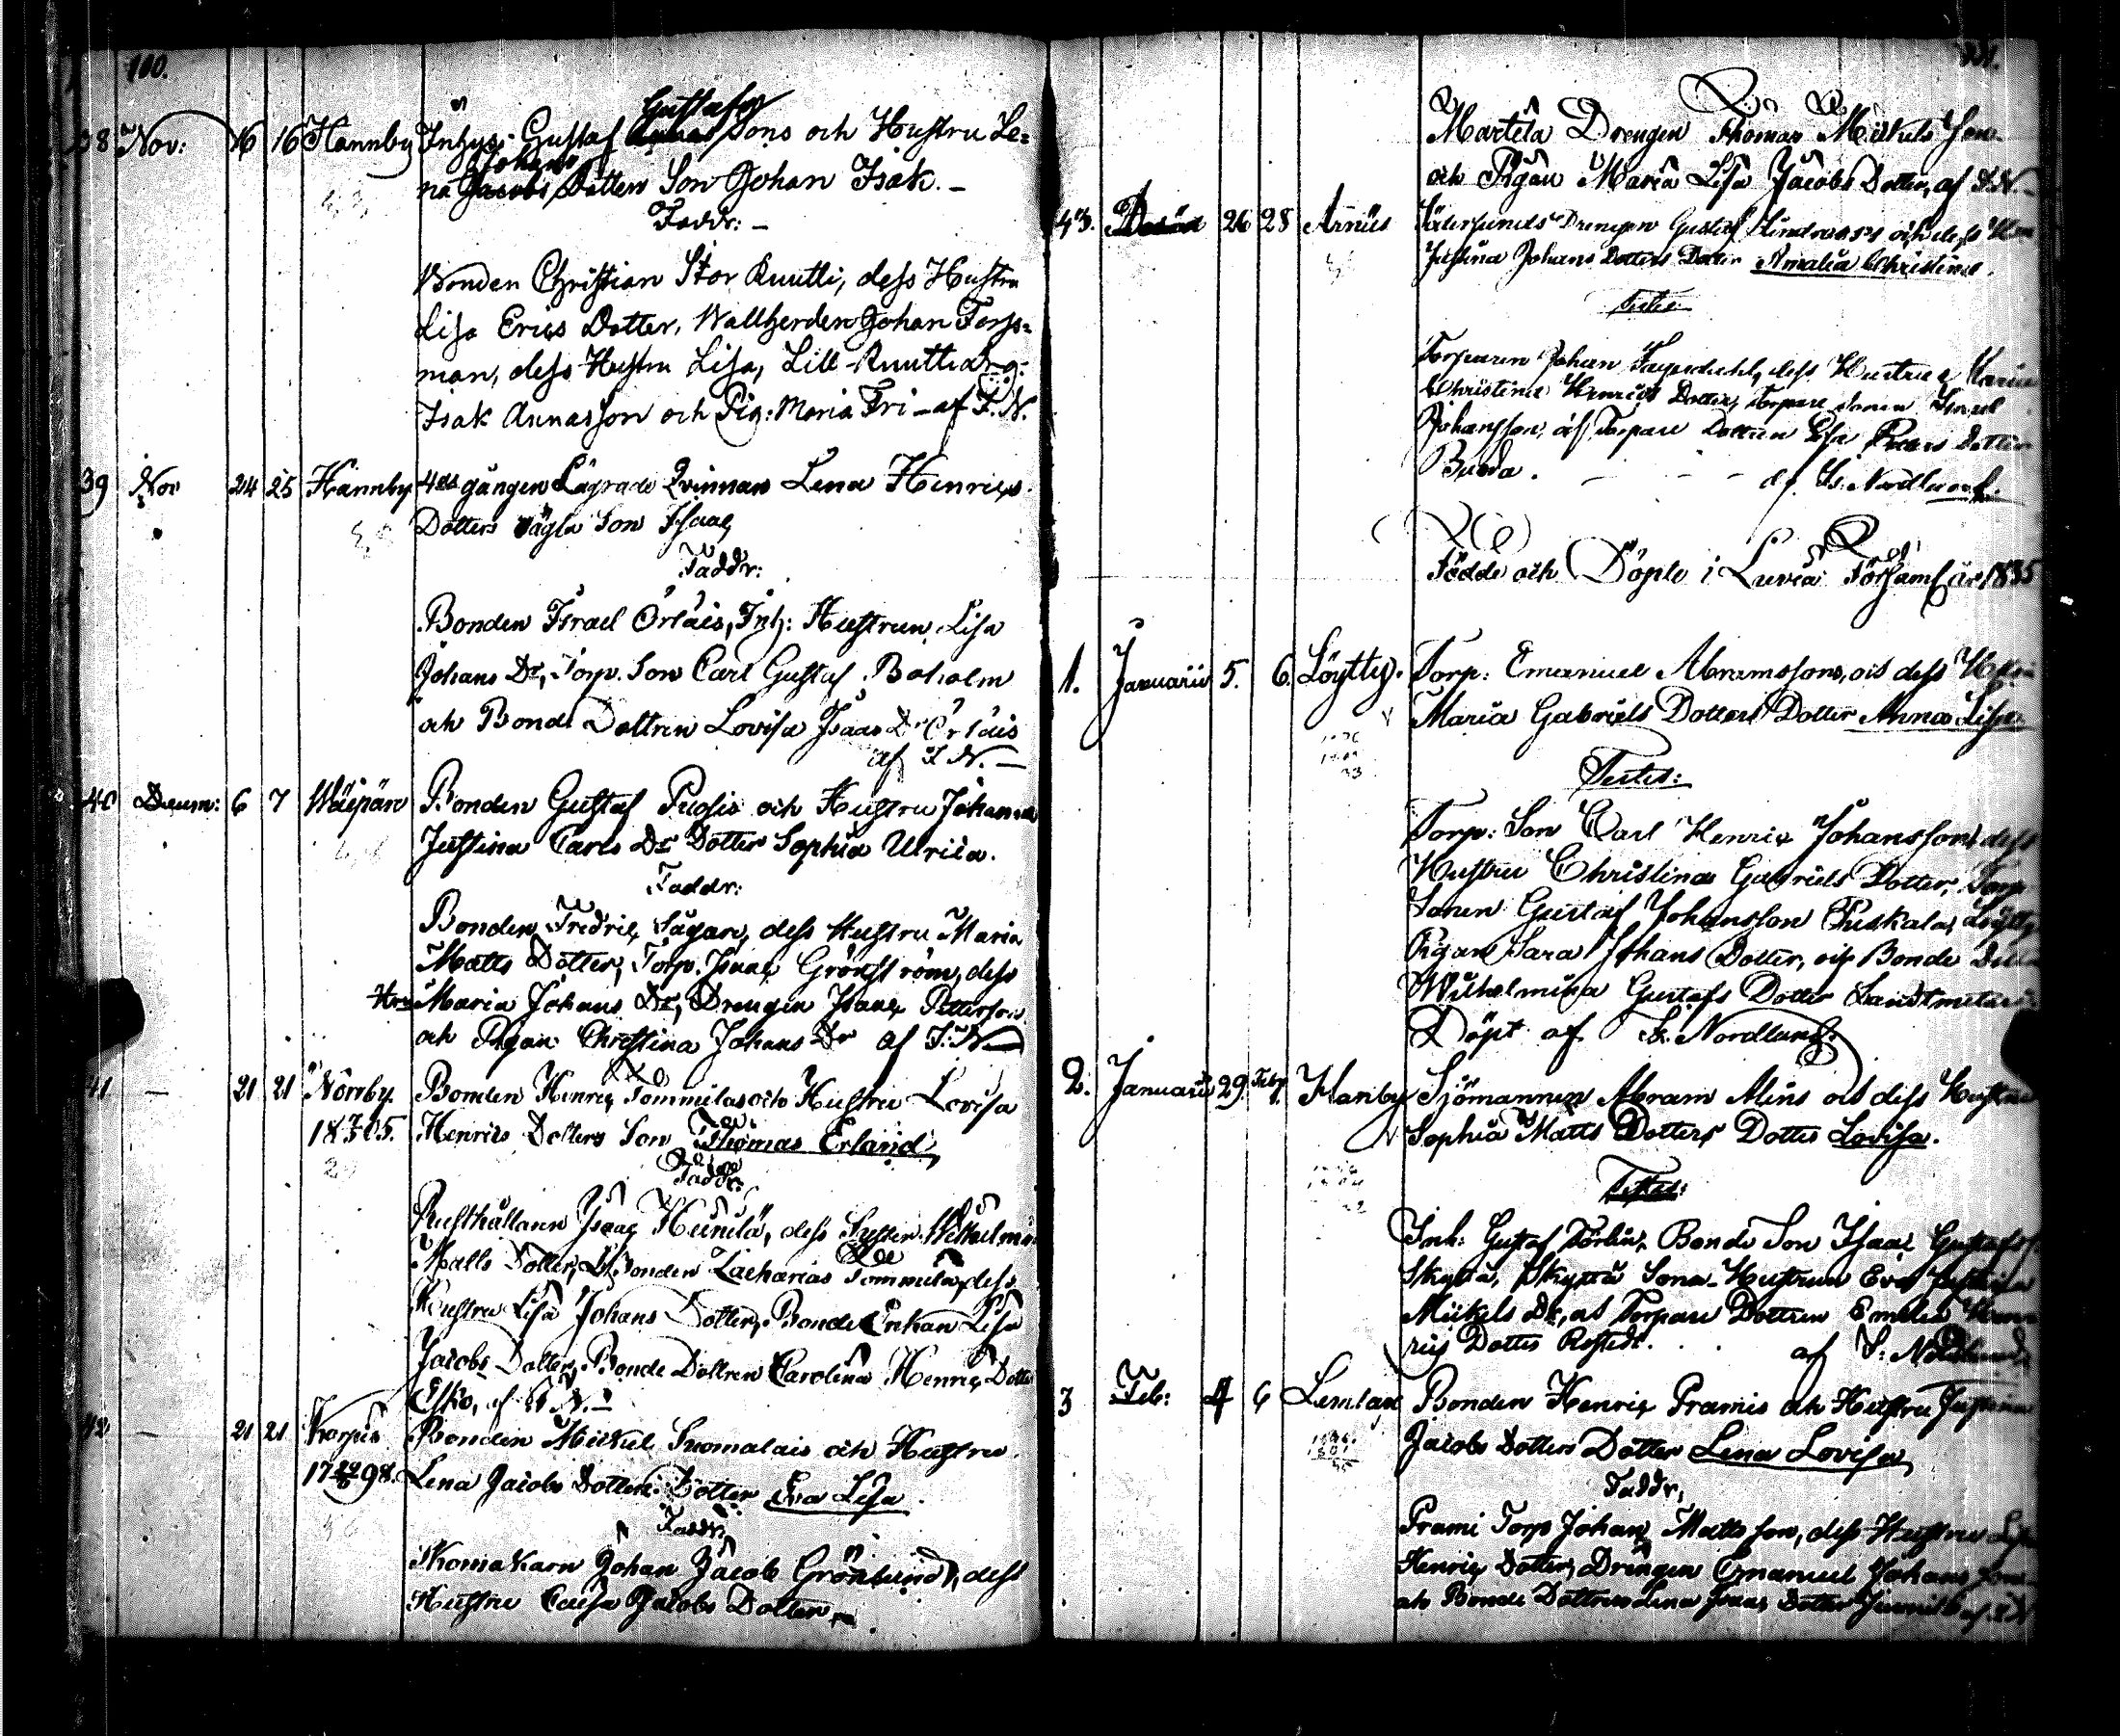 100.
38 Nov: 16 16 Hannby Inhys: Gustaf Gustafs Sons och Hustru Le=
na Johans Dotters Son Johan Isak. —
Faddr: —
Bonden Christian Stor Knutti, dess Hustru
Lisa Erics Dotter, Wallherden Johan Forss=
man, dess Hustru Lisa, Lill Knutti Drg:
Isak Annasson och Pig: Maria Fri — af F. N.
39 Nov 24 25 Hannby 4de gången Lägrade Qvinnans Lena Henrics
Dotters oägta Son Isaac
Faddr:
Bonden Israel Örlais, Inh: Hustrun Lisa
Johans Dr, Torp. Son Carl Gustaf Boholm
och Bonde Dottren Lovisa Isaacs Dr Örlais
af F N. —
40 Decem: 6 7 Wäipäre Bonden Gustaf Pugsis och Hustru Johanna
Justina Carls Dr Dotter Sophia Ulrica.
Faddr:
Bonden Fredric Sägar, dess Hustru Maria
Matts Dotter, Torp. Isaac Grönström, dess
Hru Maria Johans Dr, Drengen Isaac Petterson
och Pigan Christina Johans Dr af F. N.
41 — 21 21 Norrby Bonden Henric Tommilas och Hustru Lovisa
18 5. Henrics Dotters Son Thomas Erland
Faddr:
Rusthållaren Isaac Hunila, dess Syster Wilhelmina
Matts Dotter, Bonden Zacharias Tommila, dess
Hustru Lisa Johans Dotter, Bonde Enkan Lisa
Jacobs Dotter, Bonde Dottren Carolina Henrics Dotter
Esko, af F. N. —
42 — 21 21 Korpis Bonden Mickel Suomalais och Hustru
17 98. Lena Jacobs Dotters Dotter Eva Lisa.
Faddr:
Skomakarn Johan Jacob Grönlund, dess
Hustru Caisa Jacobs Dotter,
Martila Drengen Thomas Mickels Son
och Pigan Maria Lisa Jacobs Dotter, af F. N. —
43. 26 28 Arnäs Södersunds Drengen Gustaf och dess
Justina Johans Dotters Dotter Amalia Christina.
Testes
Torparen Johan Fagerdahl, dess Hustru Karin
Christina Henrics Dotter, Torpare Sonen Israel
Johansson, och Torpare Dottren Lisa Dotter
Buoda. — — — af Fr. Nordlund.
Födde och Döpte i Luvia Församl. år 1835
1. Januarii 5. 6. Löyttÿ. Torp: Emanuel Abramssons, och dess Hustru
Maria Gabriels Dotters Dotter Anna Lisa
Testes:
Torp: Son Carl Henric Johansson, dess
Hustru Christina Gabriels Dotter, Torp
Sonen Gustaf Johansson Puskala, Löyttÿ
Pigan Sara Johans Dotter, och Bonde
Wilhelmina Gustafs Dotter Landtmeters
Döpt af Fr. Nordlund.
2. Januarii 29. Feb. 1. Hanby Sjömannen Abram Alms och dess Hustru
Sophia Matts Dotters Dotter Lovisa.
Testes:
Inh: Gustaf Törlin, Bonde Son Isaac Gustafsson
Skyttä, Skyttä Sona-Hustrun Eva
Mickels Dr, och Torpare Dottren Emelia Hen-
rics Dotter Rostedt. af F. Nordlund
3 Feb: 4 6 Lemlax Bonden Henric Pramis och Hustru Justina
Jacobs Dotters Dotter Lena Lovisa
Faddr,
Prami Torp Johan Mattsson, dess Hustru Lisa
Henrics Dotter, Drengen Emanuel Johans son
och Bonde Dottren Lena Isaacs Dotter